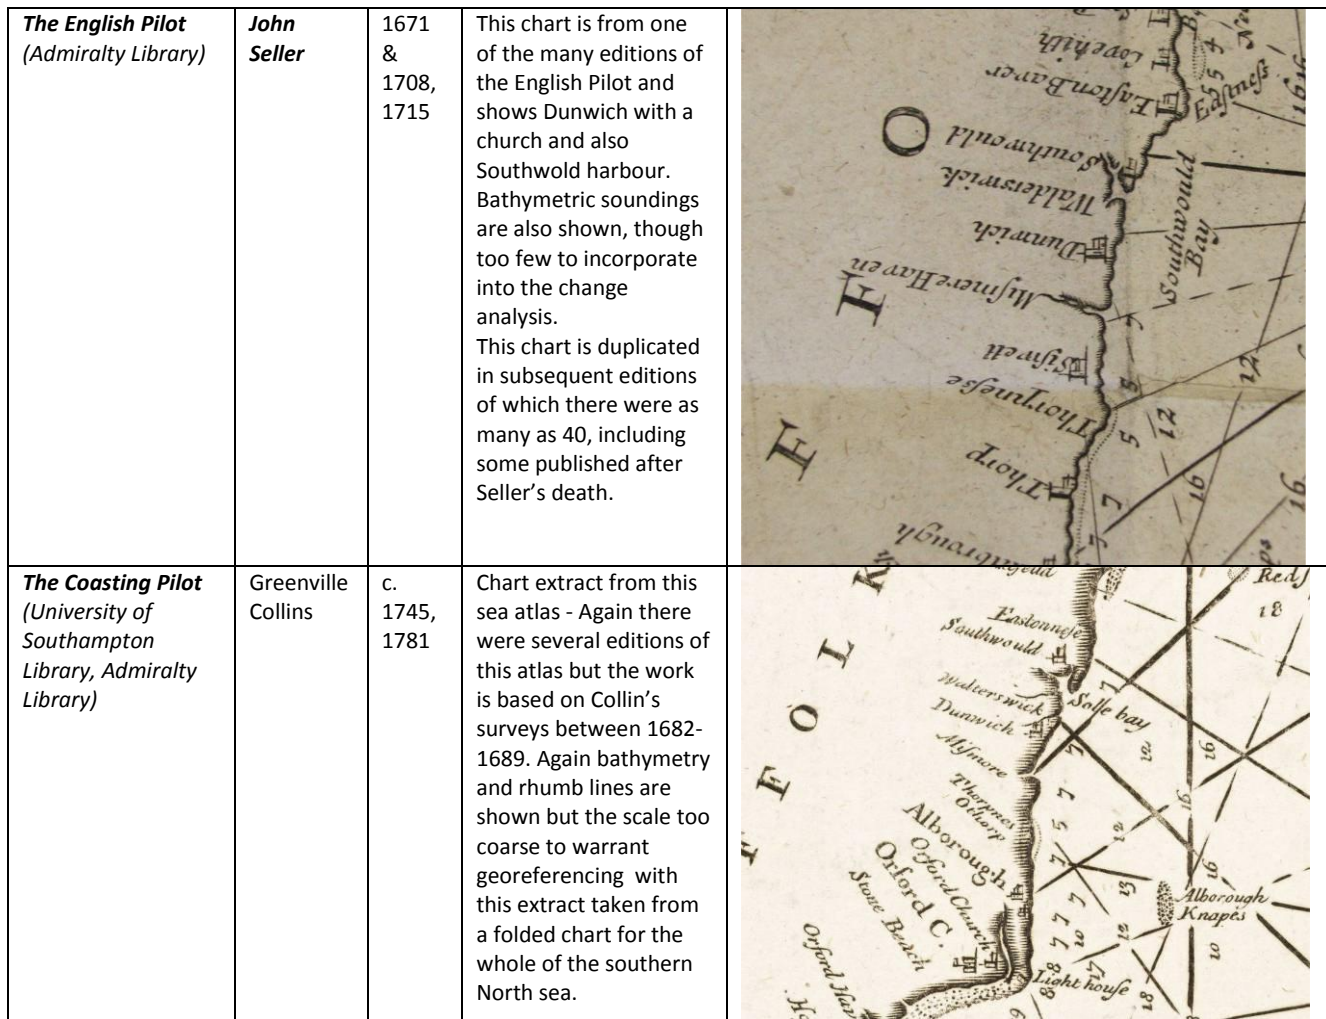 The English Pilot
(Admiralty Library)
John
Seller
1671
&
1708,
1715
This chart is from one
of the many editions of
the English Pilot and
shows Dunwich with a
church and also
Southwold harbour.
Bathymetric soundings
are also shown, though
too few to incorporate
into the change
analysis.
This chart is duplicated
in subsequent editions
of which there were as
many as 40, including
some published after
Seller's death.
Covehith
Easton Baver
Eastneſs
Southwould
Walderswick
Dunwich
Southwould
Bay
Miſmere Haven
Siſwell
Thorpneſse
Thorp
O
F
F
5
4
5
16
7
5
5
12
12
7
7
16
16
The Coasting Pilot
(University of
Southampton
Library, Admiralty
Library)
Greenville
Collins
c.
1745,
1781
Chart extract from this
sea atlas - Again there
were several editions of
this atlas but the work
is based on Collin's
surveys between 1682-
1689. Again bathymetry
and rhumb lines are
shown but the scale too
coarse to warrant
georeferencing with
this extract taken from
a folded chart for the
whole of the southern
North sea.
F
F
O
L
K
Eastonneſe
Southwould
Walterswick
Dunwich
Solle bay
Miſmore
Thorpnes
Othorp
Alborough
Orford Church
Orford C.
Stone Beach
Alborough
Knapes
Light houſe
18
7
7
12
16
16
7
5
7
12
16
13
7
7
7
10
12
10
8
17
8
18
9